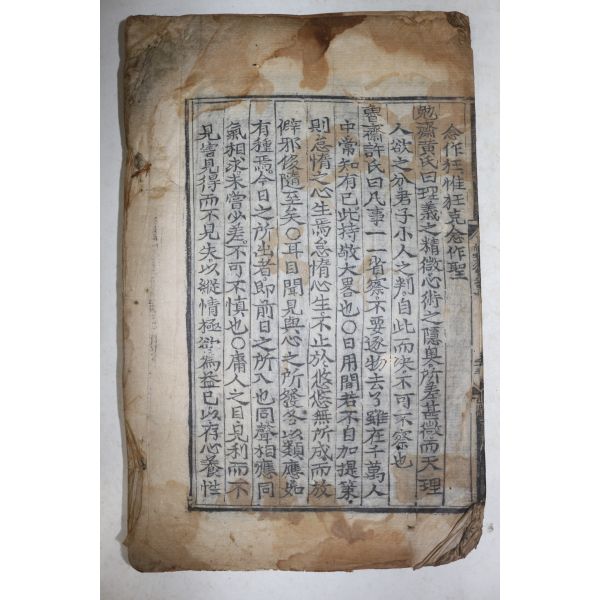 念作狂惟狂克念作聖
勉齋黃氏曰理義之精微心術之隱奧所差甚微而天理
人欲之分君子小人之判自此而決不可不察也
魯齋許氏曰凡事一一省察不要逐物去了雖在千萬人
中常知有已此持敬大畧也〇日用間若不自加提策
則怠惰之心生焉怠惰心生不止於悠悠無所成而放
僻邪侈隨至矣〇耳目聞見與心之所發各以類應如
有種焉今日之所出者即前日之所入也同聲相應同
氣相求未嘗少差不可不慎也〇庸人之目見利而不
見害見得而不見失以縱情極欲為益已以存心養性